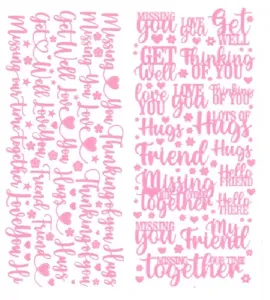 Missing you Thinking of you Hugs
Missing you Love you Thinking of you
Get Well Love you Hugs Hugs
Get Well Love you Friend Friend
Missing our time together Love you
MISSING LOVE Get
you you WELL
GET Thinking
Well OF YOU
love LOVE Thinking
you you OF YOU
Hugs LOTS OF
Hugs
Friend Hugs
Missing Hello
FRIEND
together Hello
THERE
MISSING My
you Friend
MISSING OUR TIME
together